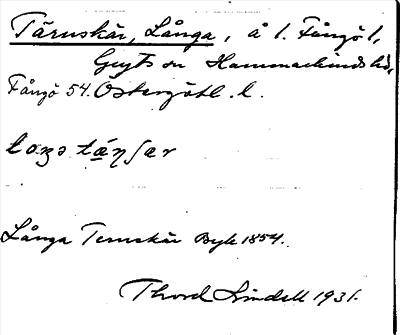 Tärnskär, Långa, å l. Fångö l,
Gryts sn Hammarkinds hd,
Fångö 54. Östergötl. l.
Långa Ternskär Byk 1854.
Thord Lindell 1931.